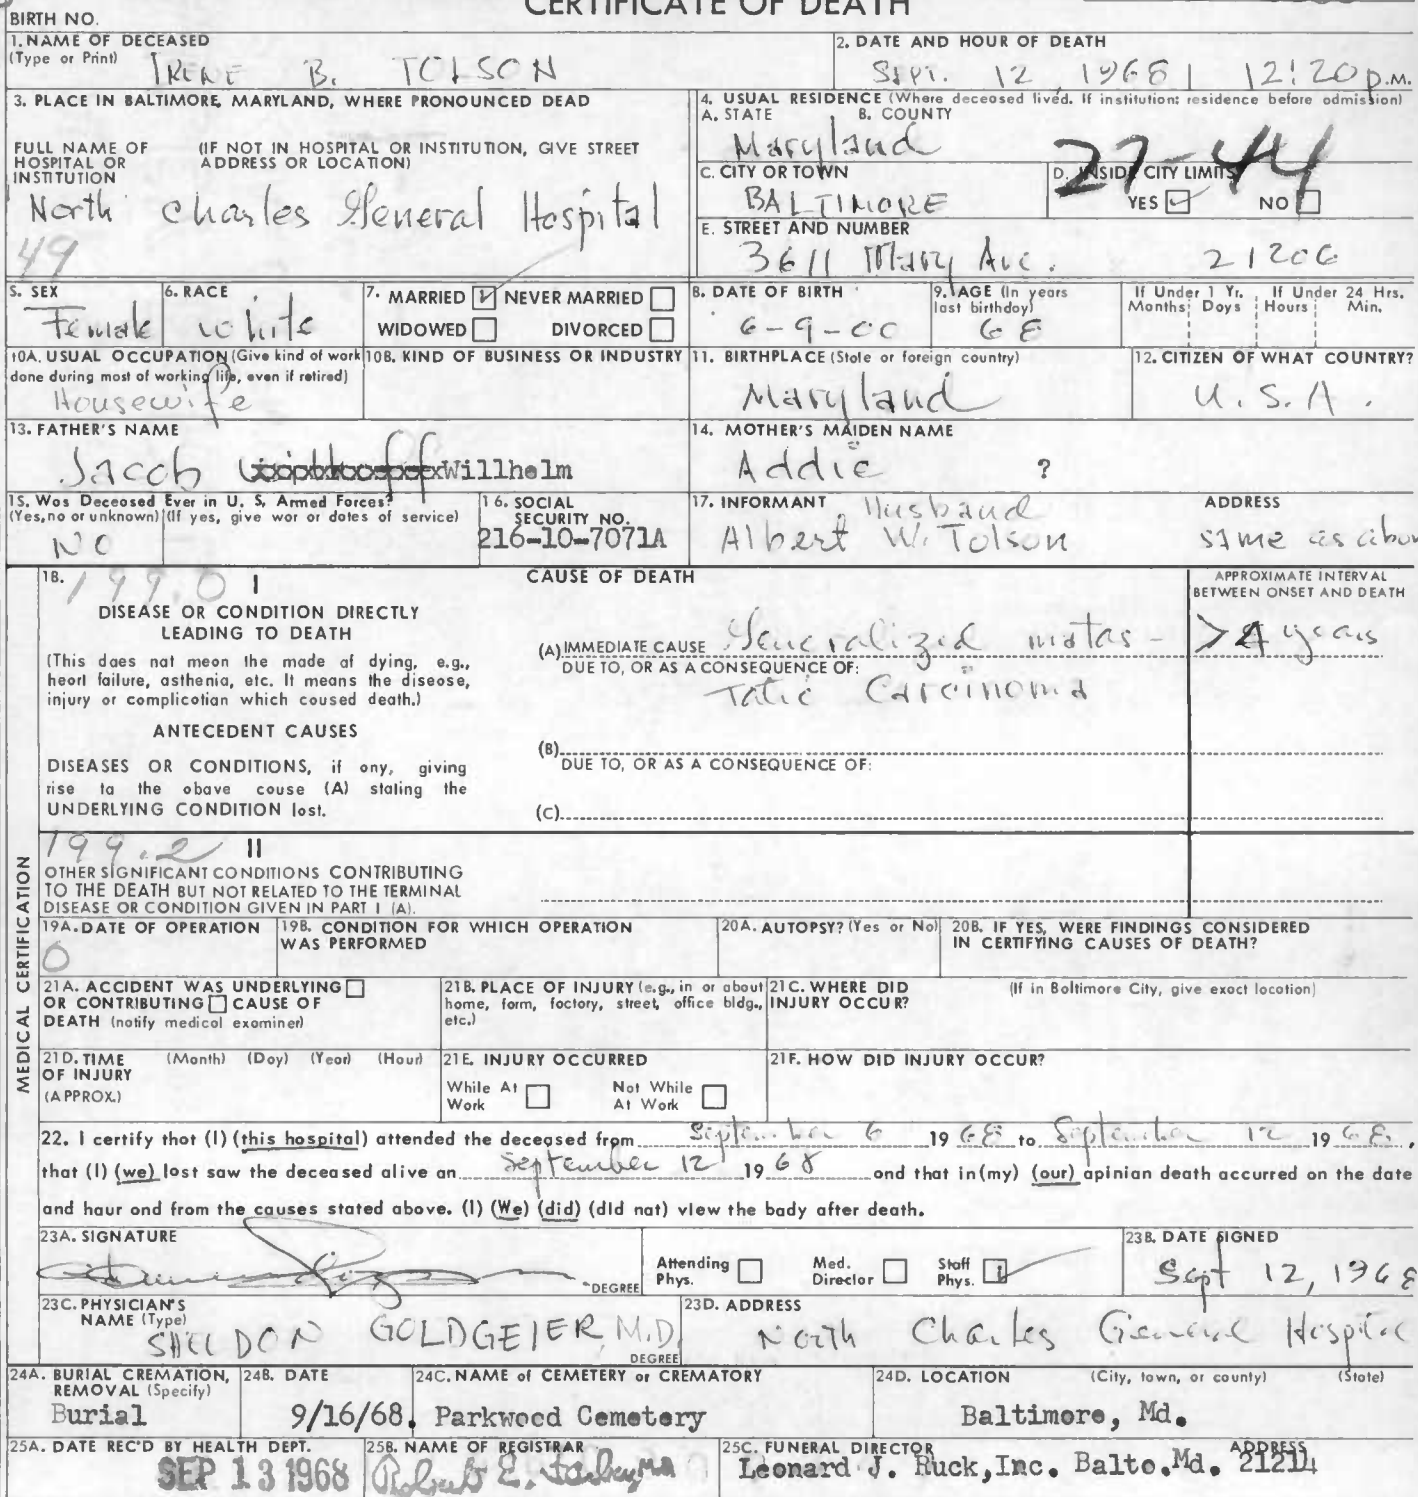 CERTIFICATE OF DEATH
BIRTH NO.
1. NAME OF DECEASED
(Type or Print) IRENE B. TOLSON
2. DATE AND HOUR OF DEATH
Sept. 12 1968 | 12:20 P.M.
3. PLACE IN BALTIMORE, MARYLAND, WHERE PRONOUNCED DEAD
FULL NAME OF HOSPITAL OR INSTITUTION
(IF NOT IN HOSPITAL OR INSTITUTION, GIVE STREET ADDRESS OR LOCATION)
North Charles General Hospital
49
4. USUAL RESIDENCE (Where deceased lived. If institution: residence before admission)
A. STATE B. COUNTY
Maryland
27-44
C. CITY OR TOWN
BALTIMORE
D. INSIDE CITY LIMITS
YES ☑ NO ☐
E. STREET AND NUMBER
3611 Mary Ave. 21206
5. SEX
Female
6. RACE
White
7. MARRIED ☑ NEVER MARRIED ☐
WIDOWED ☐ DIVORCED ☐
8. DATE OF BIRTH
6-9-00
9. AGE (In years last birthday)
68
If Under 1 Yr. Months Days
If Under 24 Hrs. Hours Min.
10A. USUAL OCCUPATION (Give kind of work done during most of working life, even if retired)
Housewife
10B. KIND OF BUSINESS OR INDUSTRY
11. BIRTHPLACE (State or foreign country)
Maryland
12. CITIZEN OF WHAT COUNTRY?
U.S.A.
13. FATHER'S NAME
Jacob Willhelm
14. MOTHER'S MAIDEN NAME
Addie ?
15. Was Deceased Ever in U. S. Armed Forces?
(Yes, no or unknown) (If yes, give war or dates of service)
NO
16. SOCIAL SECURITY NO.
216-10-7071A
17. INFORMANT Husband ADDRESS
Albert W. Tolson same as above
18. 199.0 I
DISEASE OR CONDITION DIRECTLY
LEADING TO DEATH
(This does not mean the mode of dying, e.g.,
heart failure, asthenia, etc. It means the disease,
injury or complication which caused death.)
ANTECEDENT CAUSES
DISEASES OR CONDITIONS, if any, giving
rise to the above cause (A) stating the
UNDERLYING CONDITION last.
CAUSE OF DEATH
APPROXIMATE INTERVAL
BETWEEN ONSET AND DEATH
(A) IMMEDIATE CAUSE Generalized metas- > 4 years
DUE TO, OR AS A CONSEQUENCE OF:
tatic Carcinoma
(B)
DUE TO, OR AS A CONSEQUENCE OF:
(C)
199.2 II
OTHER SIGNIFICANT CONDITIONS CONTRIBUTING
TO THE DEATH BUT NOT RELATED TO THE TERMINAL
DISEASE OR CONDITION GIVEN IN PART I (A).
MEDICAL CERTIFICATION
19A. DATE OF OPERATION
0
19B. CONDITION FOR WHICH OPERATION WAS PERFORMED
20A. AUTOPSY? (Yes or No)
20B. IF YES, WERE FINDINGS CONSIDERED IN CERTIFYING CAUSES OF DEATH?
21A. ACCIDENT WAS UNDERLYING ☐
OR CONTRIBUTING ☐ CAUSE OF
DEATH (notify medical examiner)
21B. PLACE OF INJURY (e.g., in or about
home, farm, factory, street, office bldg.,
etc.)
21C. WHERE DID INJURY OCCUR?
(If in Baltimore City, give exact location)
21D. TIME OF INJURY (APPROX.)
(Month) (Day) (Year) (Hour)
21E. INJURY OCCURRED
While At Work ☐ Not While At Work ☐
21F. HOW DID INJURY OCCUR?
22. I certify that (I) (this hospital) attended the deceased from September 6 1968 to September 12 1968,
that (I) (we) last saw the deceased alive on September 12 1968 and that in (my) (our) opinion death occurred on the date
and hour and from the causes stated above. (I) (We) (did) (did not) view the body after death.
23A. SIGNATURE
DEGREE
Attending Phys. ☐ Med. Director ☐ Staff Phys. ☑
23B. DATE SIGNED
Sept 12, 1968
23C. PHYSICIAN'S NAME (Type)
SHELDON GOLDGEIER, M.D.
DEGREE
23D. ADDRESS
North Charles General Hospital
24A. BURIAL CREMATION, REMOVAL (Specify)
Burial
24B. DATE
9/16/68.
24C. NAME of CEMETERY or CREMATORY
Parkwood Cemetery
24D. LOCATION (City, town, or county) (State)
Baltimore, Md.
25A. DATE REC'D BY HEALTH DEPT.
SEP 13 1968
25B. NAME OF REGISTRAR
Robert E. Farber, M.D.
25C. FUNERAL DIRECTOR ADDRESS
Leonard J. Ruck, Inc. Balto. Md. 21214